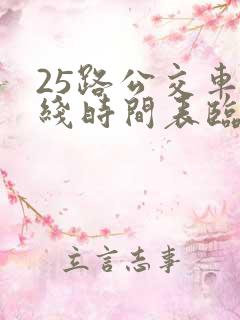 25路公交車
綫時間表臨
立言志事